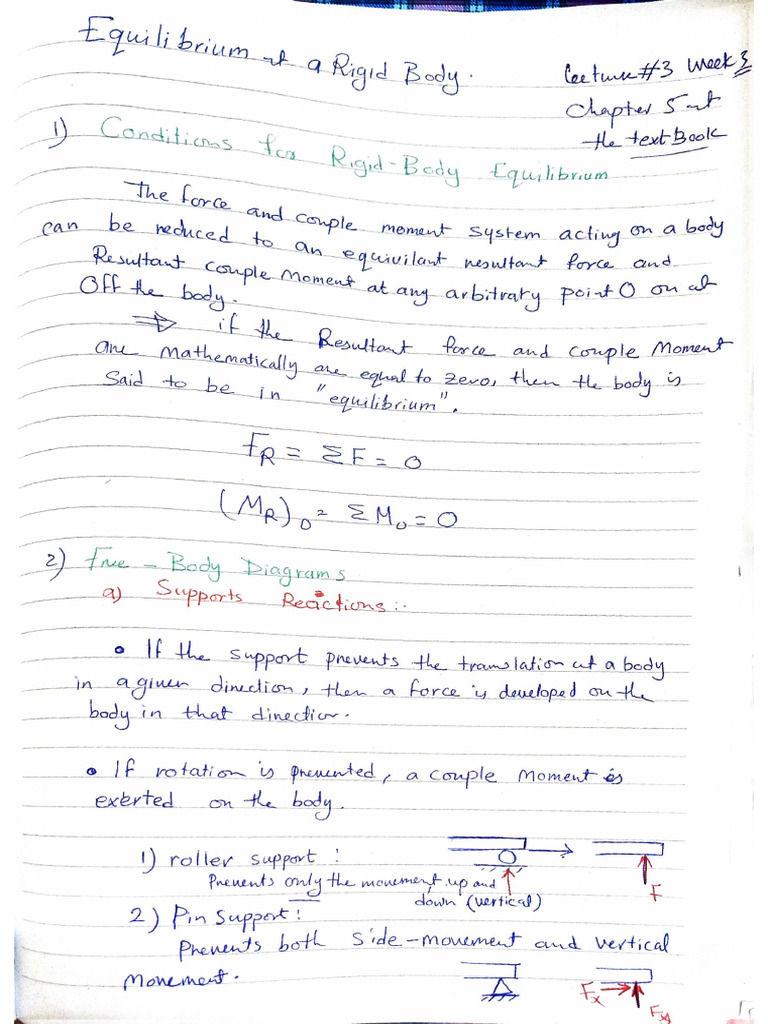 Equilibrium of a Rigid Body.
Lecture #3 Week 3
Chapter 5 of
the textBook
1) Conditions for Rigid-Body Equilibrium
The force and couple moment system acting on a body
can be reduced to an equivilant resultant force and
Resultant couple Moment at any arbitrary point O on of
Off the body.
⇒ if the Resultant force and couple Moment
are mathematically are equal to zero, then the body is
Said to be in "equilibrium".
F_R = ΣF = 0
(M_R)_O = ΣM_O = 0
2) Free-Body Diagrams
a) Supports Reactions:.
• If the support prevents the translation of a body
in a given direction, then a force is developed on the
body in that direction.
• If rotation is prevented, a couple moment is
exerted on the body.
1) roller support :
Prevents only the movement up and
down (vertical)
F
2) Pin Support :
Prevents both side-movement and vertical
Movement.
Fx
Fy